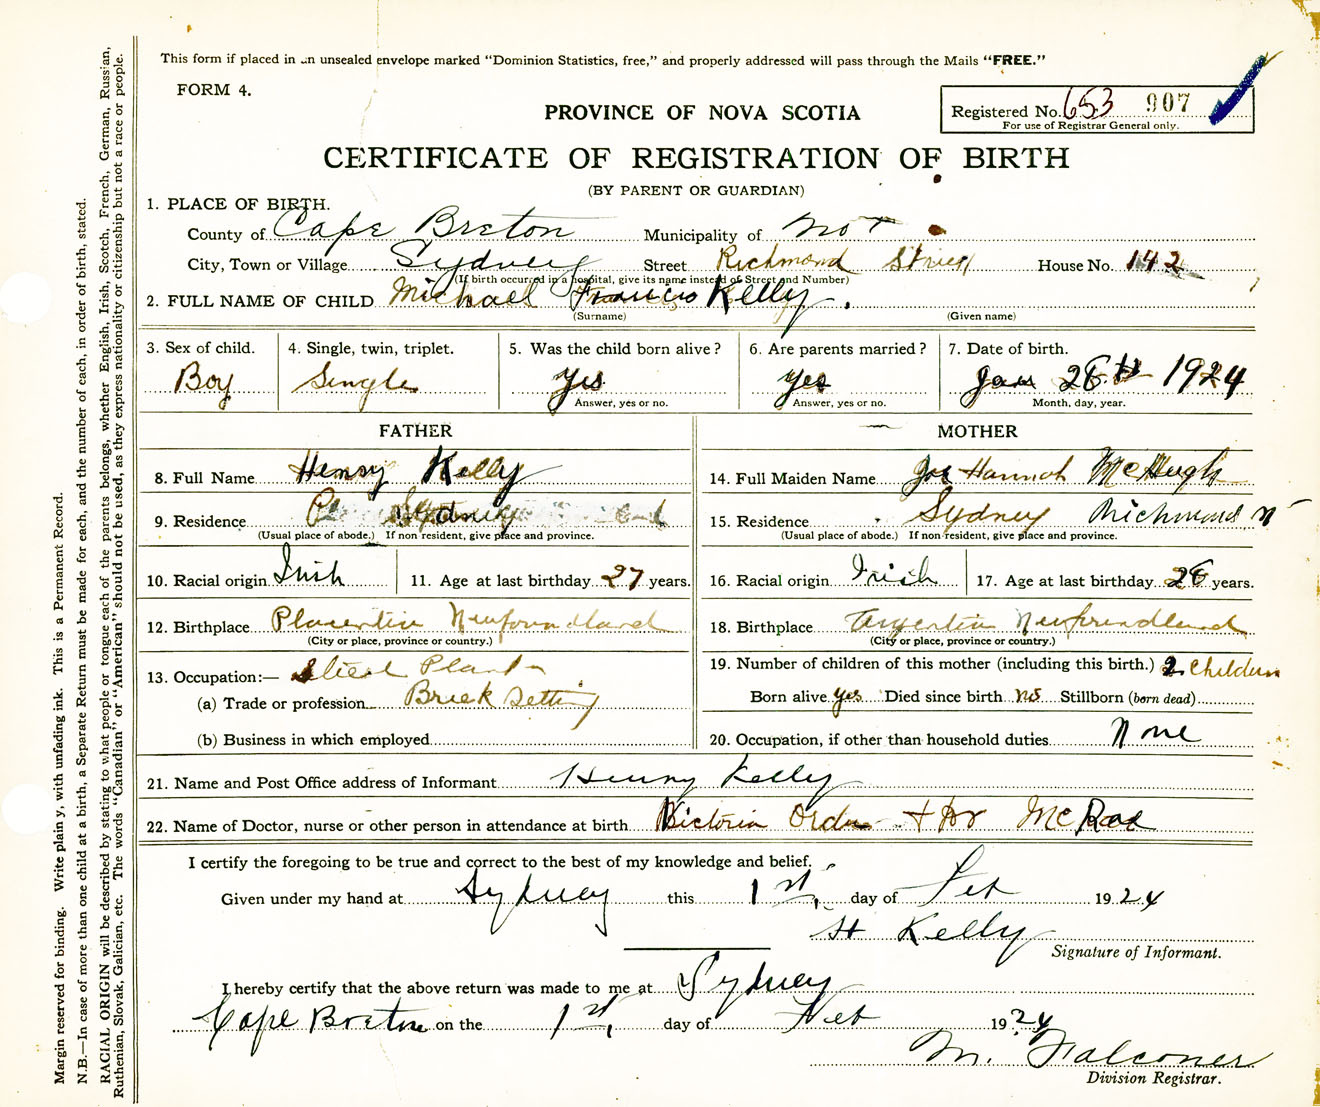 This form if placed in an unsealed envelope marked "Dominion Statistics, free," and properly addressed will pass through the Mails "FREE."
FORM 4.
PROVINCE OF NOVA SCOTIA
Registered No. 653 907
For use of Registrar General only.
CERTIFICATE OF REGISTRATION OF BIRTH
(BY PARENT OR GUARDIAN)
1. PLACE OF BIRTH.
County of Cape Breton Municipality of Not
City, Town or Village Sydney Street Richmond Street House No. 142
(If birth occurred in a hospital, give its name instead of Street and Number)
2. FULL NAME OF CHILD Michael Francis Kelly.
(Surname) (Given name)
3. Sex of child. 4. Single, twin, triplet. 5. Was the child born alive? 6. Are parents married? 7. Date of birth.
Boy Single Yes Yes Jan 26th 1924
Answer, yes or no. Answer, yes or no. Month, day, year.
FATHER MOTHER
8. Full Name Henry Kelly 14. Full Maiden Name Hannah McHugh
9. Residence Sydney 15. Residence Sydney Richmond
(Usual place of abode.) If non resident, give place and province. (Usual place of abode.) If non resident, give place and province.
10. Racial origin Irish 11. Age at last birthday 27 years. 16. Racial origin Irish 17. Age at last birthday 26 years.
12. Birthplace Placentia Newfoundland 18. Birthplace Argentia Newfoundland
(City or place, province or country.) (City or place, province or country.)
13. Occupation:— Steel Plant 19. Number of children of this mother (including this birth.) 2 Children
(a) Trade or profession Brick Setting Born alive yes Died since birth no Stillborn (born dead)
(b) Business in which employed 20. Occupation, if other than household duties None
21. Name and Post Office address of Informant Henry Kelly
22. Name of Doctor, nurse or other person in attendance at birth Victoria Order + Dr McRae
I certify the foregoing to be true and correct to the best of my knowledge and belief.
Given under my hand at Sydney this 1st, day of Feb 1924
H Kelly
Signature of Informant.
I hereby certify that the above return was made to me at Sydney
Cape Breton on the 1st, day of Feb 1924
M. Falconer
Division Registrar.
Margin reserved for binding. Write plain y, with unfading ink. This is a Permanent Record.
N.B.—In case of more than one child at a birth, a Separate Return must be made for each, and the number of each, in order of birth, stated.
RACIAL ORIGIN will be described by stating to what people or tongue each of the parents belongs, whether English, Irish, Scotch, French, German, Russian,
Ruthenian, Slovak, Galician, etc. The words "Canadian" or "American" should not be used, as they express nationality or citizenship but not a race or people.